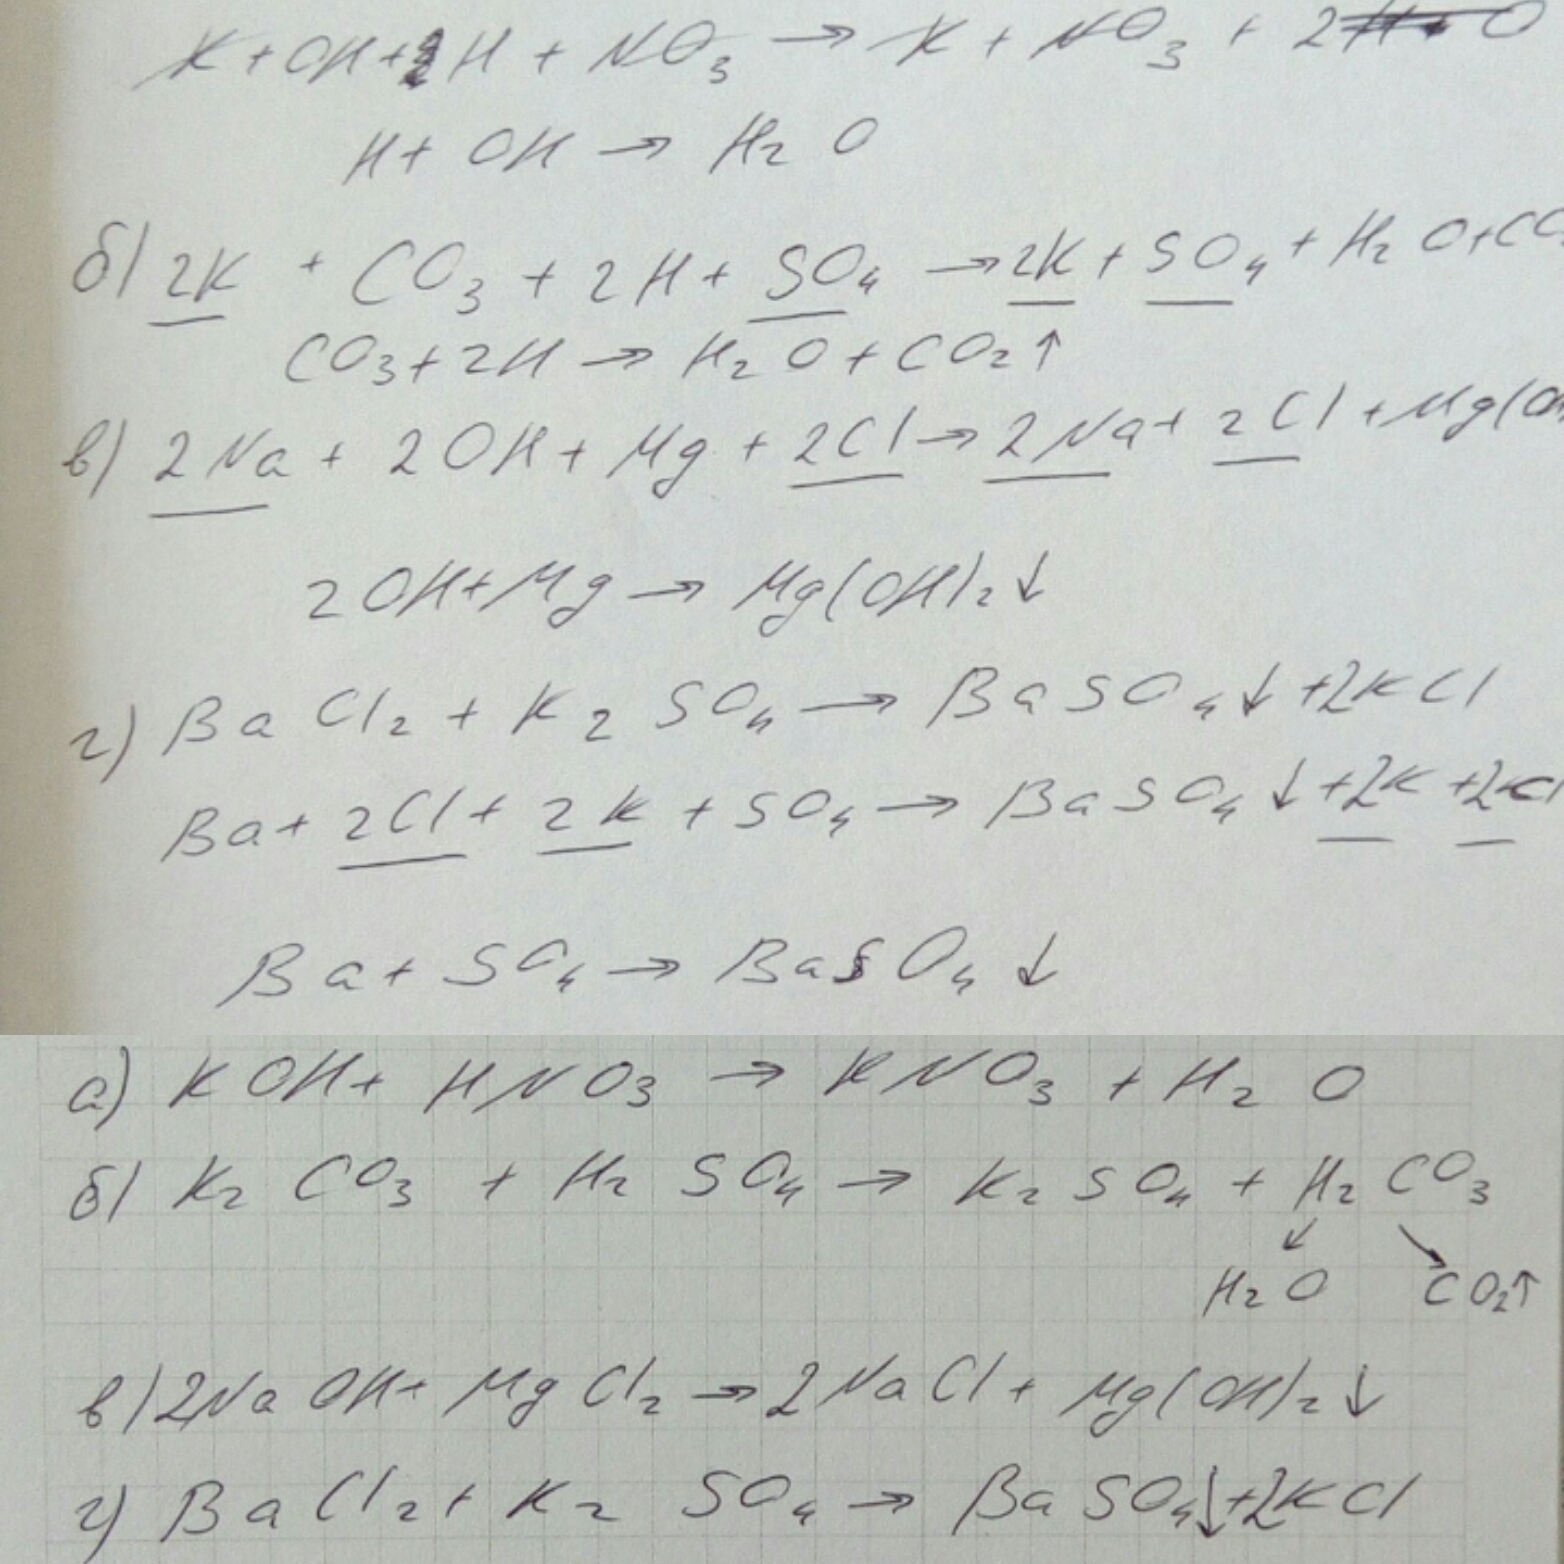 K + OH + 2H + NO₃ → K + NO₃ + 2
H + OH → H₂O
б) 2K + CO₃ + 2H + SO₄ → 2K + SO₄ + H₂O + CO
CO₃ + 2H → H₂O + CO₂↑
в) 2Na + 2OH + Mg + 2Cl → 2Na + 2Cl + Mg(OH
2OH + Mg → Mg(OH)₂↓
г) BaCl₂ + K₂SO₄ → BaSO₄↓ + 2KCl
Ba + 2Cl + 2K + SO₄ → BaSO₄↓ + 2K + 2Cl
Ba + SO₄ → BaSO₄↓
а) KOH + HNO₃ → KNO₃ + H₂O
б) K₂CO₃ + H₂SO₄ → K₂SO₄ + H₂CO₃
↙ ↘
H₂O CO₂↑
в) 2NaOH + MgCl₂ → 2NaCl + Mg(OH)₂↓
г) BaCl₂ + K₂SO₄ → BaSO₄↓ + 2KCl